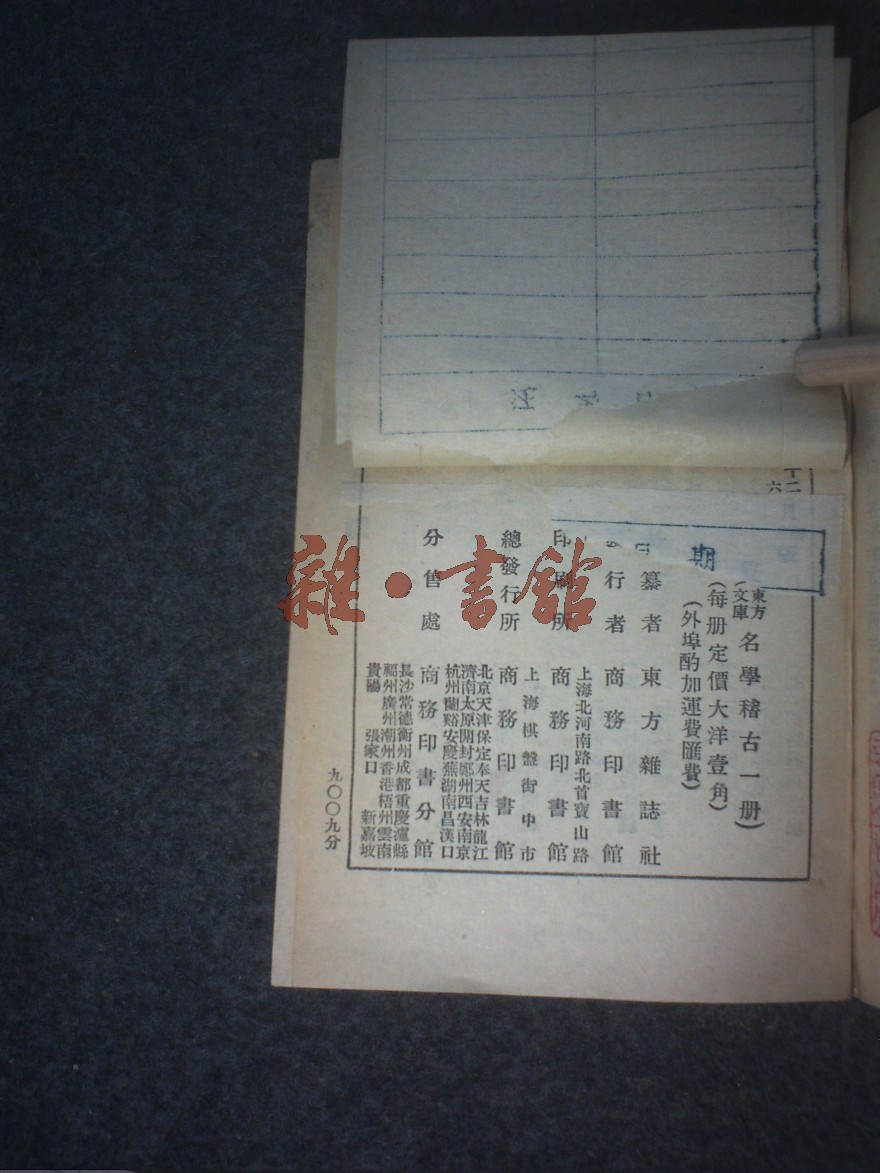 十二月
六
期
東方
文庫
名學稽古一册)
(每册定價大洋壹角)
(外埠酌加運費匯費)
纂者 東方雜誌社
行者 商務印書館
上海北河南路北首寶山路
印刷所 商務印書館
上海棋盤街中市
總發行所 商務印書館
分售處 商務印書分館
北京天津保定奉天吉林龍江
濟南太原開封鄭州西安南京
杭州蘭谿安慶蕪湖南昌漢口
長沙常德衡州成都重慶瀘縣
福州廣州潮州香港梧州雲南
貴陽 張家口 新嘉坡
九〇〇九分
雜·書館